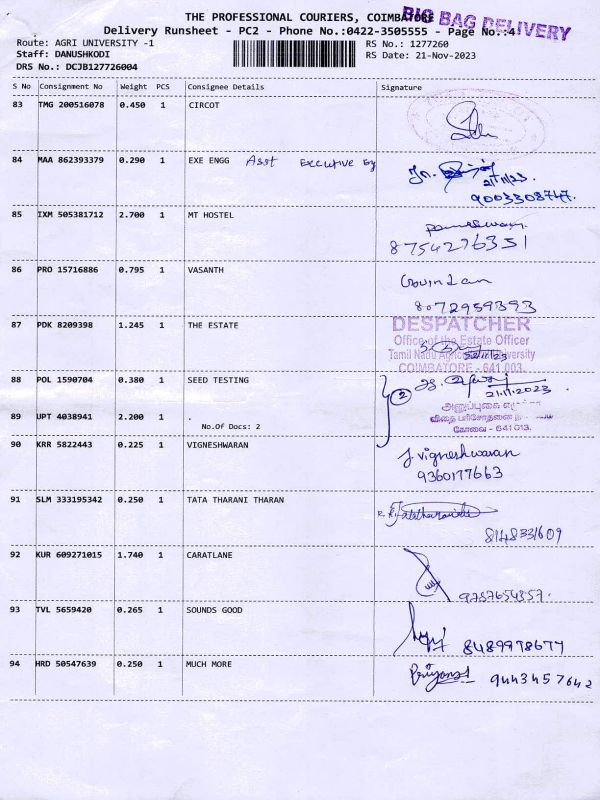 THE PROFESSIONAL COURIERS, COIMBATORE
BIG BAG DELIVERY
Delivery Runsheet - PC2 - Phone No.:0422-3505555 - Page No.:4
Route: AGRI UNIVERSITY -1 RS No.: 1277260
Staff: DANUSHKODI RS Date: 21-Nov-2023
DRS No.: DCJB127726004
S No Consignment No Weight PCS Consignee Details Signature
83 TMG 200516078 0.450 1 CIRCOT
84 MAA 862393379 0.290 1 EXE ENGG Asst Executive
21/11/23
9003308747.
85 IXM 505381712 2.700 1 MT HOSTEL
8754276351
86 PRO 15716886 0.795 1 VASANTH
8072959393
87 PDK 8209398 1.245 1 THE ESTATE
DESPATCHER
Office of the Estate Officer
Tamil Nadu Agricultural University
COIMBATORE - 641 003.
88 POL 1590704 0.380 1 SEED TESTING
2
21.11.2023
89 UPT 4038941 2.200 1 .
No.Of Docs: 2
அனுப்புகை
விதை பரிசோதனை
கோவை - 641013.
90 KRR 5822443 0.225 1 VIGNESHWARAN
J Vigneshwaran
9360177663
91 SLM 333195342 0.250 1 TATA THARANI THARAN
8148331609
92 KUR 609271015 1.740 1 CARATLANE
9787654357.
93 TVL 5659420 0.265 1 SOUNDS GOOD
8489978677
94 HRD 50547639 0.250 1 MUCH MORE
9443457642